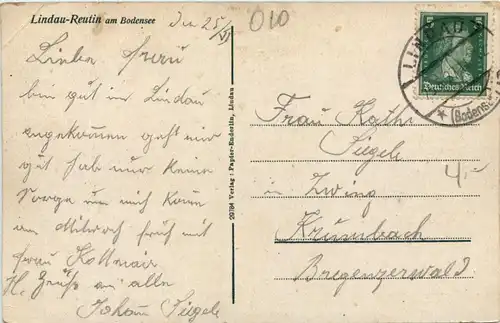 Lindau-Reutin am Bodensee
Den 25/VI
010
Lieber Frau
bin gut in Lindau
angekommen geht mir
gut hab nur keine
Sorge um mich kom
am Mittwoch früh mit
Frau Kottmair
Hl. Grüße an alle
Johann Siegele
29784 Verlag: Papier-Enderlin, Lindau
Deutsches Reich
LINDAU
(Bodensee)
Frau Kathi
Siegele
in Zwing
Krumbach
Bregenzerwald
4,-